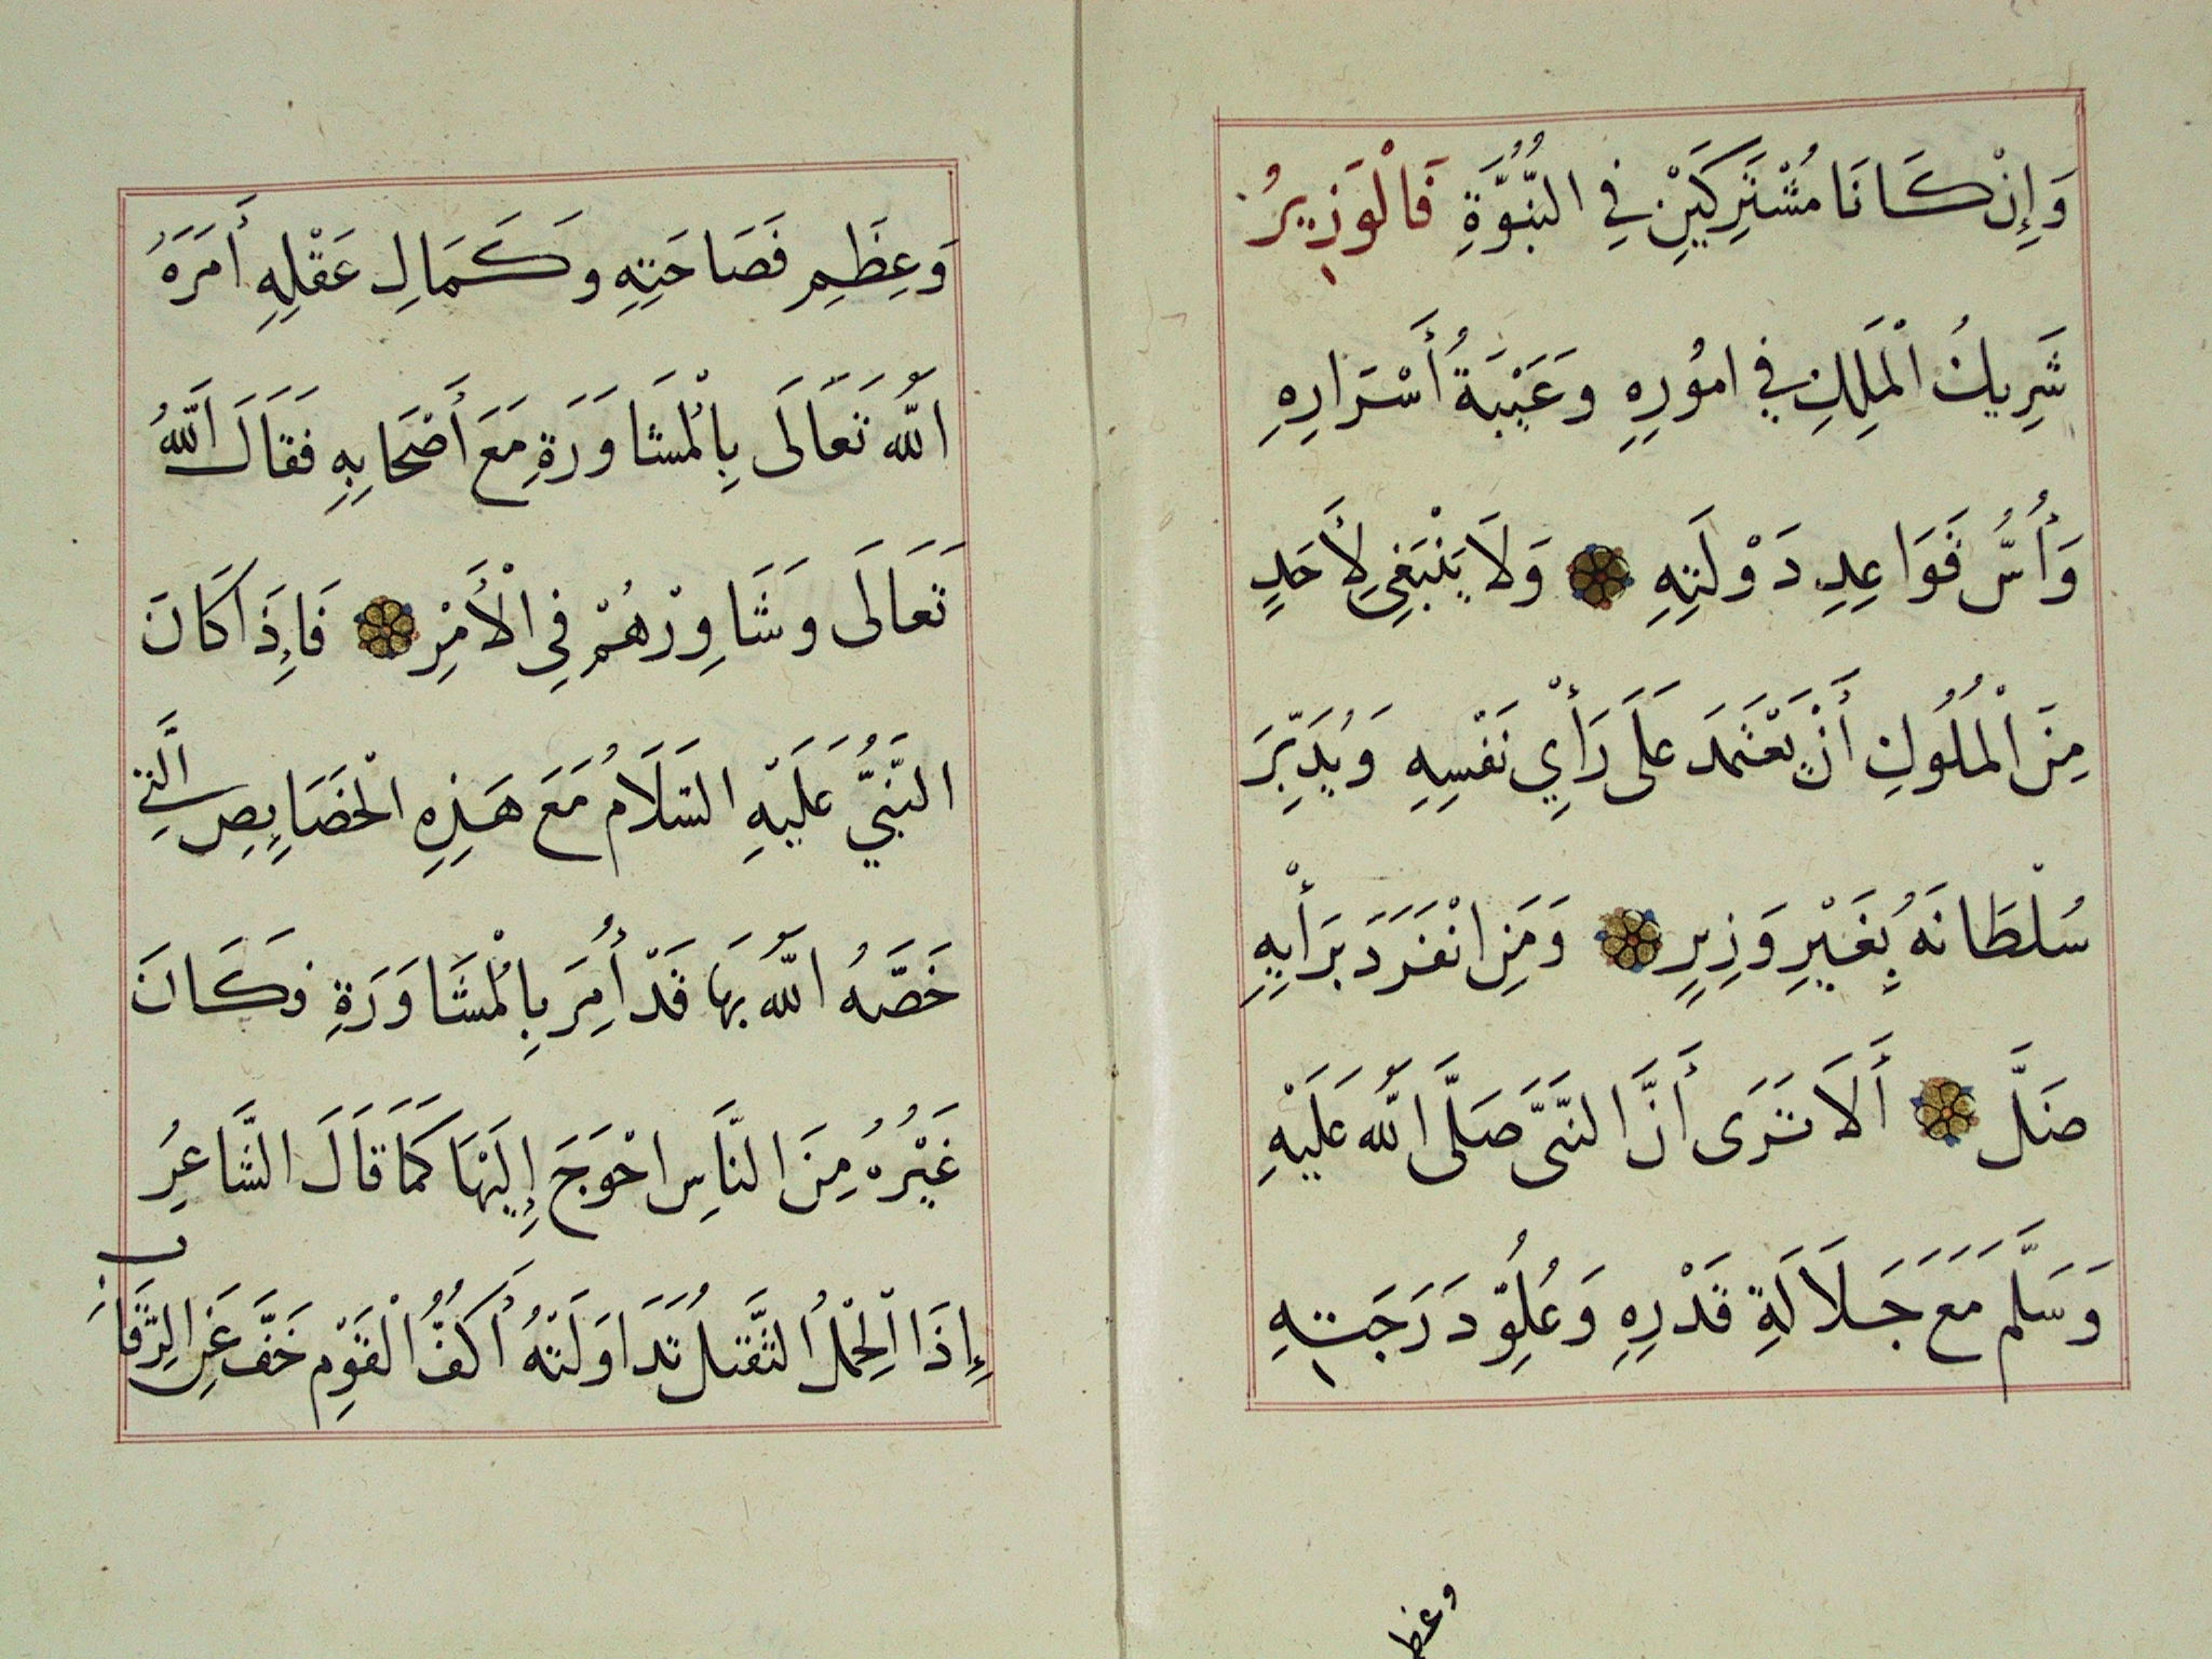 وَإِنْ كَانَا مُشْتَرِكَيْنِ فِي النُّبُوَّةِ فَالْوَزِيرُ
شَرِيكُ الْمَلِكِ فِي امُورِهِ وَعَيْبَةُ أَسْرَارِهِ
وَأُسُّ قَوَاعِدِ دَوْلَتِهِ وَلَا يَنْبَغِي لِأَحَدٍ
مِنَ الْمُلُوكِ أَنْ يَعْتَمَدَ عَلَى رَأْيِ نَفْسِهِ وَيُدَبِّرَ
سُلْطَانَهُ بِغَيْرِ وَزِيرٍ وَمَنِ انْفَرَدَ بَرَأْيِهِ
ضَلَّ أَلَا تَرَى أَنَّ النَّبِيَّ صَلَّى اللَّه عَلَيْهِ
وَسَلَّم مَع جَلَالَةِ قَدْرِهِ وَعُلُوِّ دَرَجَتِهِ
وعظ
وَعِظَمِ فَصَاحَتِهِ وكَمَالِ عَقْلِهِ أَمَرَهُ
اللَّه تَعَالَى بِالْمُشَاوَرَةِ مَعَ أَصْحَابِهِ فَقَالَ اللَّهُ
تَعَالَى وشَاوِرْهُمْ فِي الْأَمْرِ فَإِذَا كَانَ
النَّبِيُّ عَلَيْهِ السَّلَامُ مَعَ هَذِهِ الْخَصَايِصِ الَّتِي
خَصَّهُ اللَّهُ بِهَا قَدْ أُمِرَ بِالْمُشَاوَرَةِ فكَانَ
غَيْرُهُ مِنَ النَّاسِ احْوَجَ إِلَيْهَا كَمَا قَالَ الشَّاعِرُ
إِذَا الْحِمْلُ الثَّقيلُ تَدَاوَلَتْهُ أَكُفُّ الْقَوْمِ خَفَّ عَنِ الرِّقَابِ